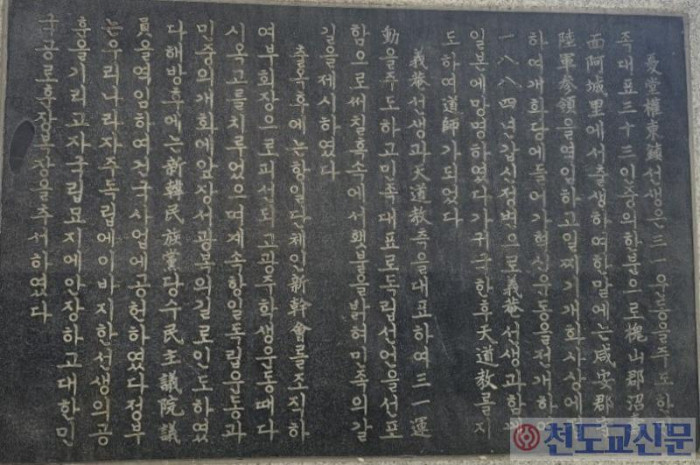 憂堂權東鎭선생은三一운동을주도한
족대표三十三인중의한분으로槐山郡沼
面阿城里에서출생하여한말에는咸安郡
陸軍參領을역임하고일찌기개화사상에
하여개화당에들어가혁신운동을전개하
一八八四년갑신정변으로義菴선생과함께
일본에망명하였다가귀국한후天道敎를지
도하여道師가되었다
義菴선생과天道敎측을대표하여三一運
動을주도하고민족대표로독립선언을선포
함으로써칠흑속에서횃불을밝혀민족의갈
길을제시하였다
출옥후에는항일단체인新幹會를조직하
여부회장으로피선되고광주학생운동때다
시옥고를치루었으며계속항일독립운동과
민중의개화에앞장서광복의길로인도하였
다해방후에는新韓民族黨당수民主議院議
員을역임하여건국사업에공헌하였다정부
는우리나라자주독립에이바지한선생의공
훈을기리고자국립묘지에안장하고대한민
국공로훈장복장을추서하였다
천도교신문